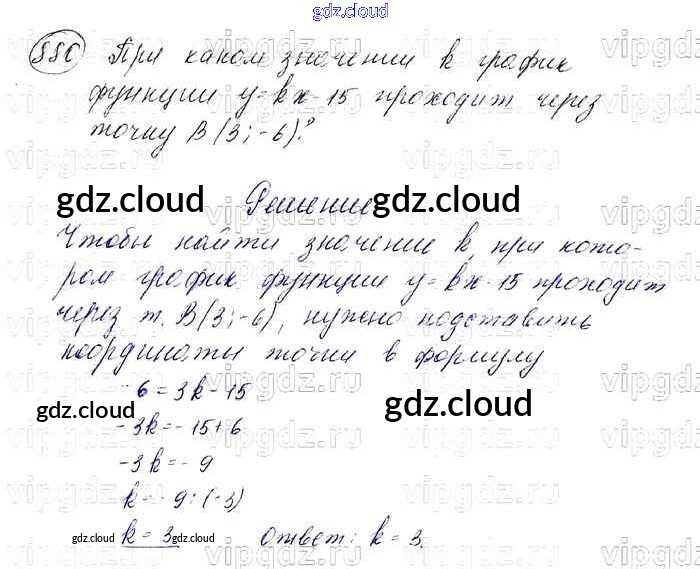 gdz.cloud
880 При каком значении k график
функции y=kx-15 проходит через
точку B(3;-6)?
gdz.cloud Решение gdz.cloud
Чтобы найти значение k, при кото-
ром график функции y=kx-15 проходит
через т. B(3;-6), нужно подставить
координаты точки в формулу
-6=3k-15
gdz.cloud gdz.cloud
-3k=-15+6
-3k=-9
k=-9:(-3)
gdz.cloud k=3 gdz.cloud Ответ: k=3.
vipgdz.ru